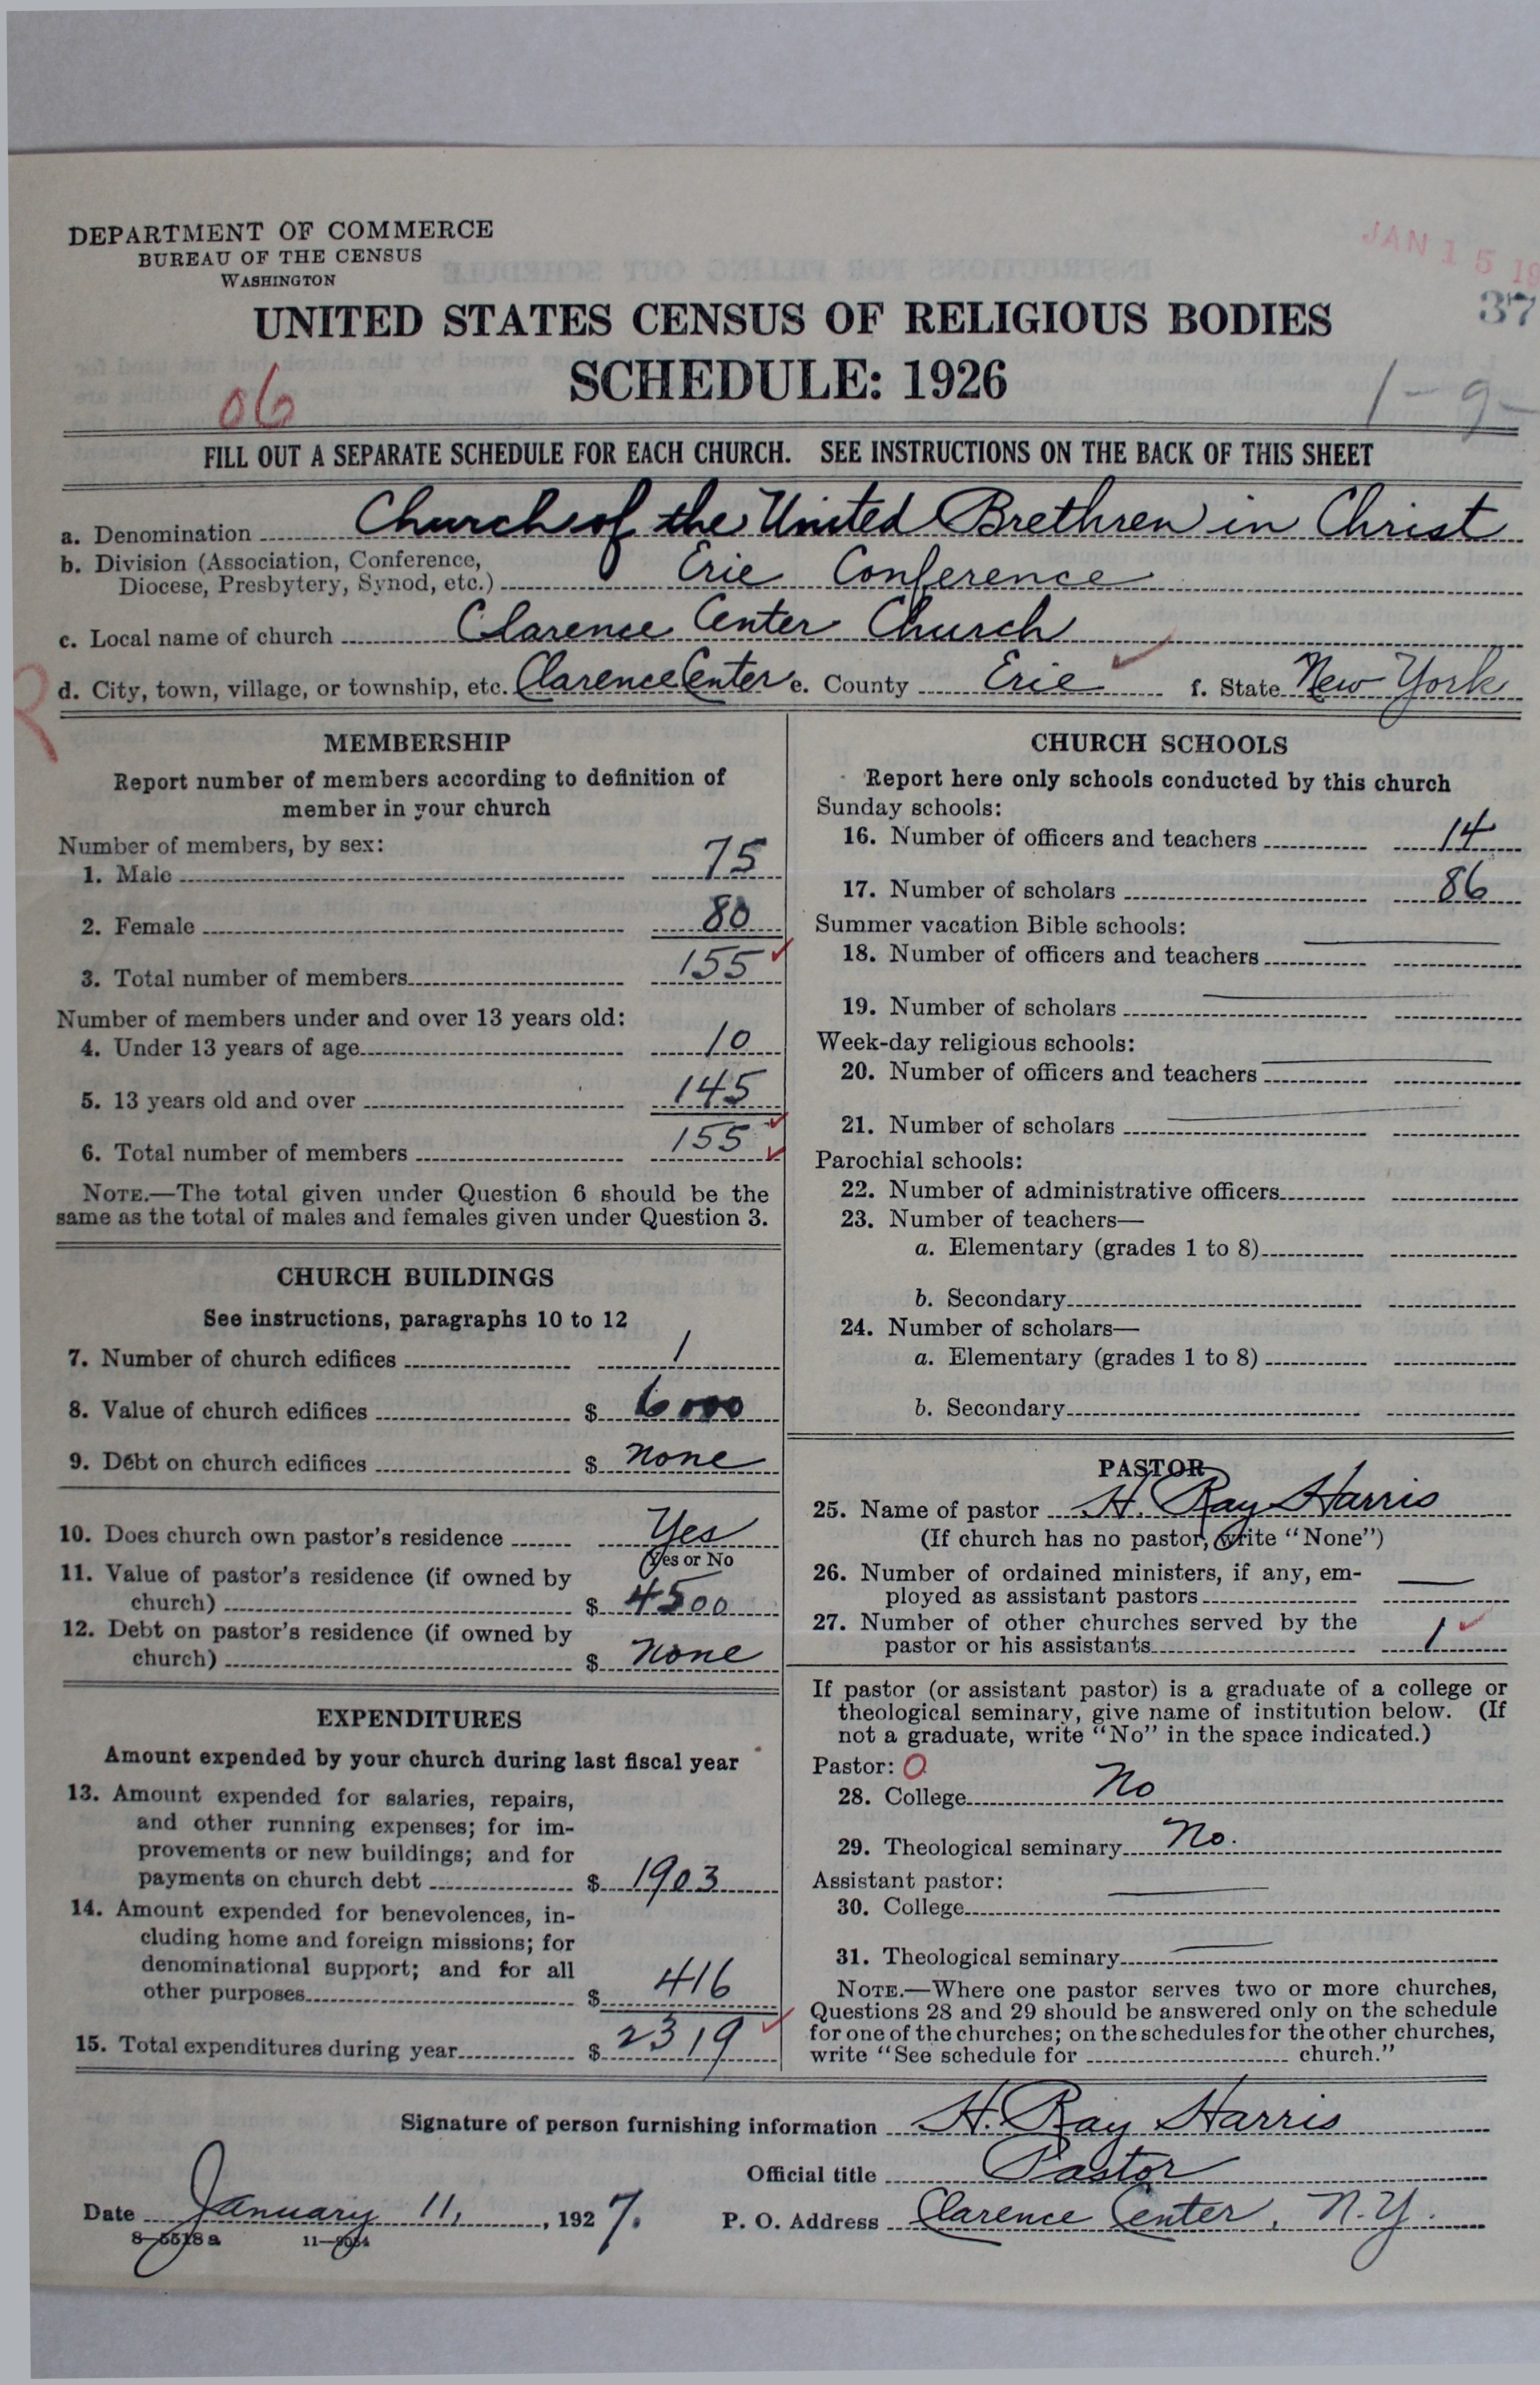 DEPARTMENT OF COMMERCE
BUREAU OF THE CENSUS
WASHINGTON
JAN 15 19
37
UNITED STATES CENSUS OF RELIGIOUS BODIES
SCHEDULE: 1926
06
1-9-
FILL OUT A SEPARATE SCHEDULE FOR EACH CHURCH. SEE INSTRUCTIONS ON THE BACK OF THIS SHEET
a. Denomination Church of the United Brethren in Christ
b. Division (Association, Conference,
Diocese, Presbytery, Synod, etc.) Erie Conference
c. Local name of church Clarence Center Church
d. City, town, village, or township, etc. Clarence Center e. County Erie f. State New York
MEMBERSHIP
Report number of members according to definition of
member in your church
Number of members, by sex:
1. Male 75
2. Female 80
3. Total number of members 155
Number of members under and over 13 years old:
4. Under 13 years of age 10
5. 13 years old and over 145
6. Total number of members 155
NOTE.—The total given under Question 6 should be the
same as the total of males and females given under Question 3.
CHURCH BUILDINGS
See instructions, paragraphs 10 to 12
7. Number of church edifices 1
8. Value of church edifices $ 6000
9. Debt on church edifices $ none
10. Does church own pastor's residence Yes
(Yes or No
11. Value of pastor's residence (if owned by
church) $ 4500
12. Debt on pastor's residence (if owned by
church) $ none
EXPENDITURES
Amount expended by your church during last fiscal year
13. Amount expended for salaries, repairs,
and other running expenses; for im-
provements or new buildings; and for
payments on church debt $ 1903
14. Amount expended for benevolences, in-
cluding home and foreign missions; for
denominational support; and for all
other purposes $ 416
15. Total expenditures during year $ 2319
CHURCH SCHOOLS
Report here only schools conducted by this church
Sunday schools:
16. Number of officers and teachers 14
17. Number of scholars 86
Summer vacation Bible schools:
18. Number of officers and teachers
19. Number of scholars
Week-day religious schools:
20. Number of officers and teachers
21. Number of scholars
Parochial schools:
22. Number of administrative officers
23. Number of teachers—
a. Elementary (grades 1 to 8)
b. Secondary
24. Number of scholars—
a. Elementary (grades 1 to 8)
b. Secondary
PASTOR
25. Name of pastor H. Ray Harris
(If church has no pastor, write "None")
26. Number of ordained ministers, if any, em-
ployed as assistant pastors —
27. Number of other churches served by the
pastor or his assistants 1
If pastor (or assistant pastor) is a graduate of a college or
theological seminary, give name of institution below. (If
not a graduate, write "No" in the space indicated.)
Pastor: O
28. College No
29. Theological seminary No.
Assistant pastor:
30. College
31. Theological seminary
NOTE.—Where one pastor serves two or more churches,
Questions 28 and 29 should be answered only on the schedule
for one of the churches; on the schedules for the other churches,
write "See schedule for church."
Signature of person furnishing information H. Ray Harris
Official title Pastor
Date January 11, , 1927.
P. O. Address Clarence Center, N.Y.
8-5518 a 11-9054